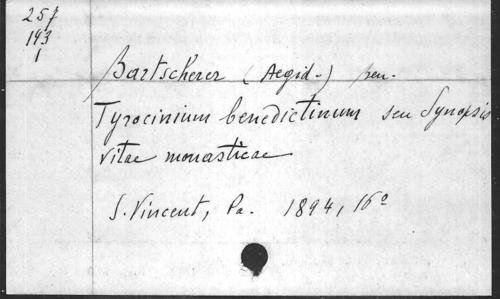 257
193
1
Bartscherer (Aegid.) sen.
Tyrocinium benedictinum seu Synopsis
vitae monasticae
S. Vincent, Pa. 1894, 16º